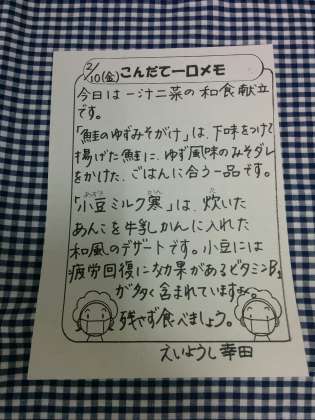 2/10(金)こんだて一口メモ
今日は一汁二菜の和食献立
です。
「鮭のゆずみそがけ」は、下味をつけて
揚げた鮭に、ゆず風味のみそダレ
をかけた、ごはんに合う一品です。
「小豆ミルク寒」は、炊いた
あんこを牛乳かんに入れた
和風のデザートです。小豆には
疲労回復に効果があるビタミンB₁
が多く含まれています。
残さず食べましょう。
えいようし 幸田